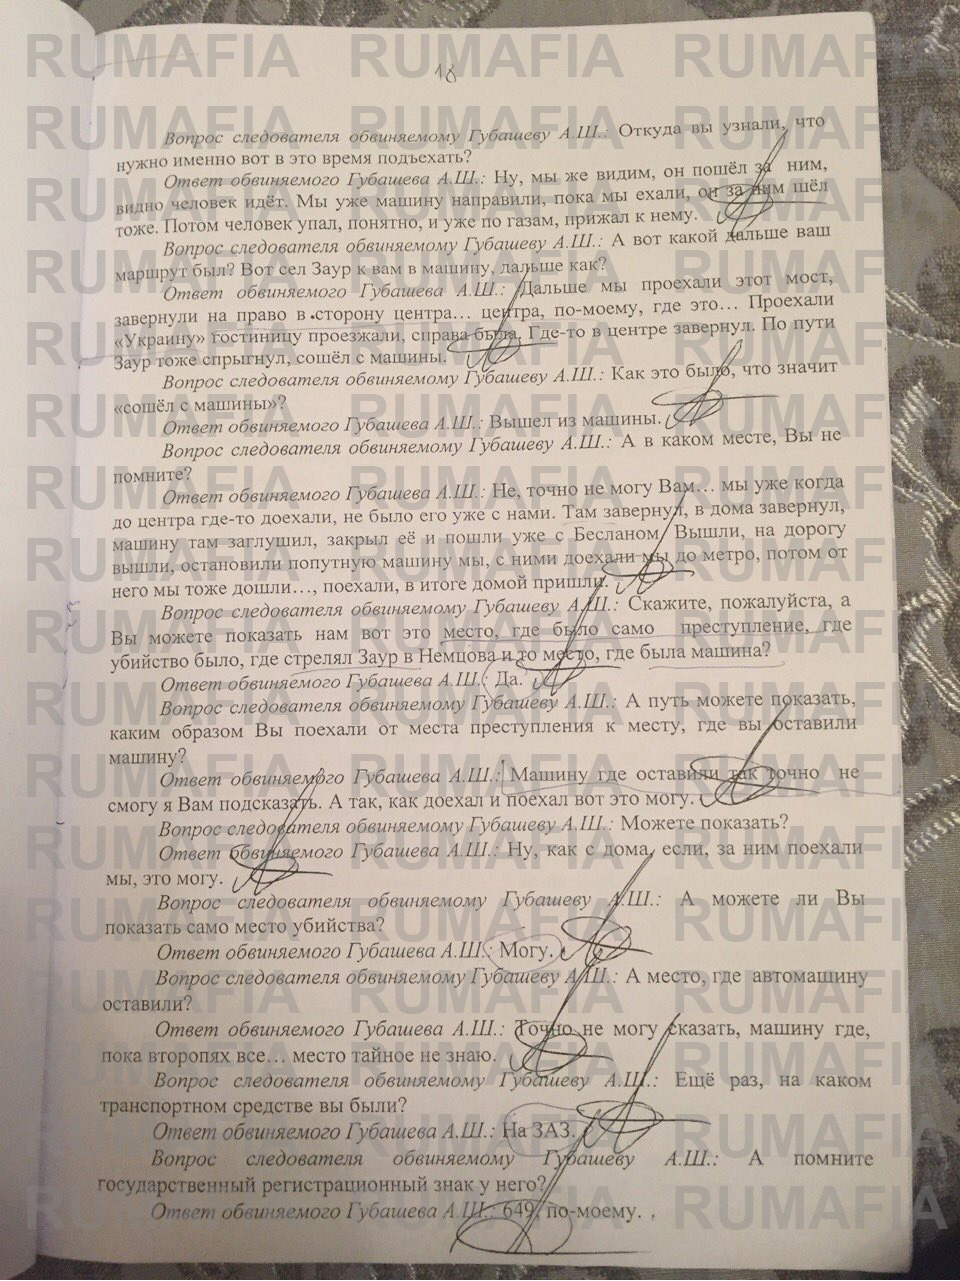 18
Вопрос следователя обвиняемому Губашеву А.Ш.: Откуда вы узнали, что
нужно именно вот в это время подъехать?
Ответ обвиняемого Губашева А.Ш.: Ну, мы же видим, он пошёл за ним,
видно человек идёт. Мы уже машину направили, пока мы ехали, он за ним шёл
тоже. Потом человек упал, понятно, и уже по газам, прижал к нему.
Вопрос следователя обвиняемому Губашеву А.Ш.: А вот какой дальше ваш
маршрут был? Вот сел Заур к вам в машину, дальше как?
Ответ обвиняемого Губашева А.Ш.: Дальше мы проехали этот мост,
завернули на право в сторону центра… центра, по-моему, где это… Проехали
«Украину» гостиницу проезжали, справа была. Где-то в центре завернул. По пути
Заур тоже спрыгнул, сошёл с машины.
Вопрос следователя обвиняемому Губашеву А.Ш.: Как это было, что значит
«сошёл с машины»?
Ответ обвиняемого Губашева А.Ш.: Вышел из машины.
Вопрос следователя обвиняемому Губашеву А.Ш.: А в каком месте, Вы не
помните?
Ответ обвиняемого Губашева А.Ш.: Не, точно не могу Вам… мы уже когда
до центра где-то доехали, не было его уже с нами. Там завернул, в дома завернул,
машину там заглушил, закрыл её и пошли уже с Бесланом. Вышли, на дорогу
вышли, остановили попутную машину мы, с ними доехали мы до метро, потом от
него мы тоже дошли…, поехали, в итоге домой пришли.
Вопрос следователя обвиняемому Губашеву А.Ш.: Скажите, пожалуйста, а
Вы можете показать нам вот это место, где было само преступление, где
убийство было, где стрелял Заур в Немцова и то место, где была машина?
Ответ обвиняемого Губашева А.Ш.: Да.
Вопрос следователя обвиняемому Губашеву А.Ш.: А путь можете показать,
каким образом Вы поехали от места преступления к месту, где вы оставили
машину?
Ответ обвиняемого Губашева А.Ш.: Машину где оставили так точно не
смогу я Вам подсказать. А так, как доехал и поехал вот это могу.
Вопрос следователя обвиняемому Губашеву А.Ш.: Можете показать?
Ответ обвиняемого Губашева А.Ш.: Ну, как с дома, если, за ним поехали
мы, это могу.
Вопрос следователя обвиняемому Губашеву А.Ш.: А можете ли Вы
показать само место убийства?
Ответ обвиняемого Губашева А.Ш.: Могу.
Вопрос следователя обвиняемому Губашеву А.Ш.: А место, где автомашину
оставили?
Ответ обвиняемого Губашева А.Ш.: Точно не могу сказать, машину где,
пока второпях все… место тайное не знаю.
Вопрос следователя обвиняемому Губашеву А.Ш.: Ещё раз, на каком
транспортном средстве вы были?
Ответ обвиняемого Губашева А.Ш.: На ЗАЗ.
Вопрос следователя обвиняемому Губашеву А.Ш.: А помните
государственный регистрационный знак у него?
Ответ обвиняемого Губашева А.Ш.: 649, по-моему.